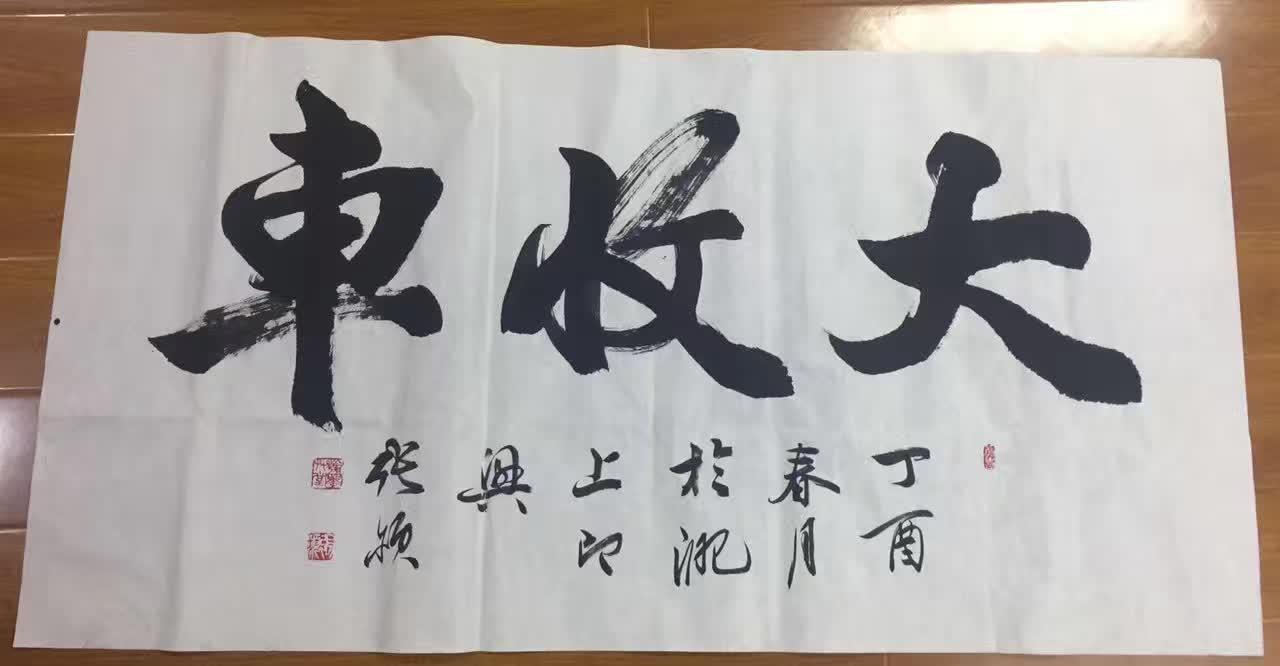 大收車
丁酉
春月
於淝
上即
興
張潁